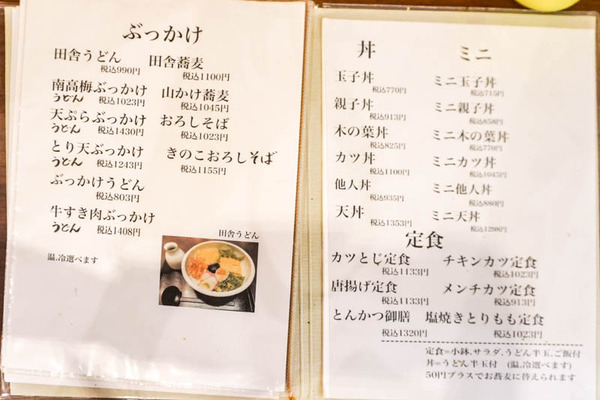 ぶっかけ
田舎うどん 税込990円
田舎蕎麦 税込1100円
南高梅ぶっかけ
うどん 税込1023円
山かけ蕎麦 税込1045円
天ぷらぶっかけ
うどん 税込1430円
おろしそば 税込1023円
とり天ぶっかけ
うどん 税込1243円
きのこおろしそば 税込1155円
ぶっかけうどん 税込803円
牛すき肉ぶっかけ
うどん 税込1408円
温,冷選べます
田舎うどん
丼
ミニ
玉子丼 税込770円
ミニ玉子丼 税込715円
親子丼 税込913円
ミニ親子丼 税込858円
木の葉丼 税込825円
ミニ木の葉丼 税込770円
カツ丼 税込1100円
ミニカツ丼 税込1045円
他人丼 税込935円
ミニ他人丼 税込880円
天丼 税込1353円
ミニ天丼 税込1298円
定食
カツとじ定食 税込1133円
チキンカツ定食 税込1023円
唐揚げ定食 税込1133円
メンチカツ定食 税込913円
とんかつ御膳 税込1320円
塩焼きとりもも定食 税込1023円
定食=小鉢,サラダ,うどん半玉,ご飯付
丼=うどん半玉付 (温,冷選べます)
50円プラスでお蕎麦に替えられます